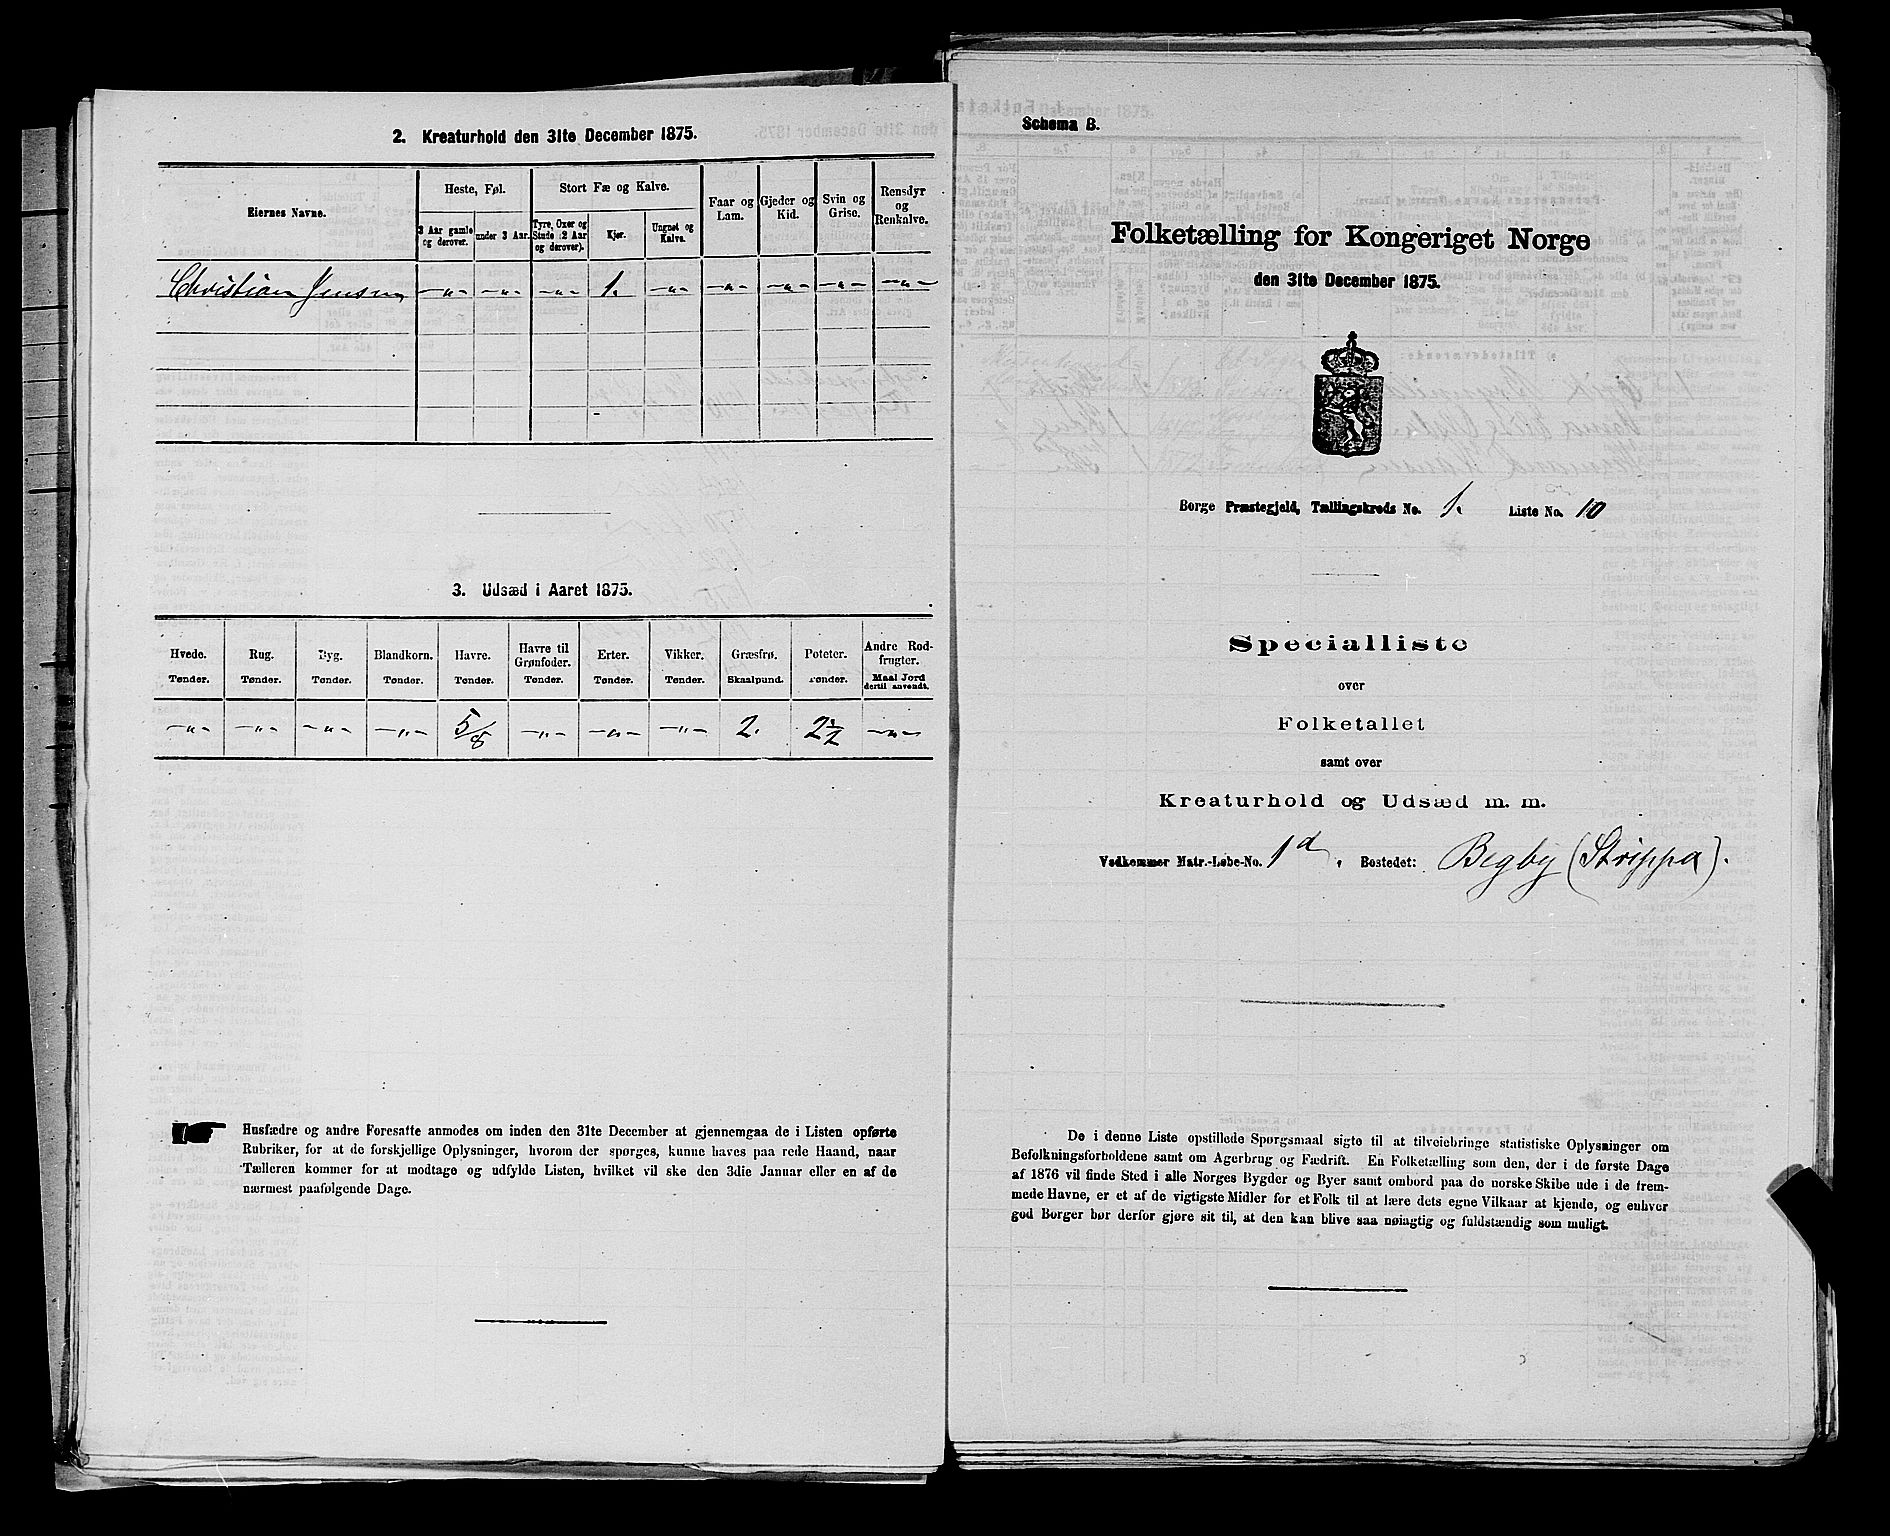 2. Kreaturhold den 31te December 1875.
Eiernes Navne.
Heste, Føl.
Stort Fæ og Kalve.
Faar og Lam.
Gjeder og Kid.
Svin og Grise.
Rensdyr og Renkalve.
3 Aar gamle og derover.
under 3 Aar.
Tyre, Oxer og Stude (2 Aar og derover).
Kjør.
Ungnøt og Kalve.
Christian Jensen —„— —„— —„— 1. —„— —„— —„— —„— —„—
3. Udsæd i Aaret 1875.
Hvede. Rug. Byg. Blandkorn. Havre. Havre til Grønfoder. Erter. Vikker. Græsfrø. Poteter. Andre Rodfrugter.
Tønder. Tønder. Tønder. Tønder. Tønder. Tønder. Tønder. Tønder. Skaalpund. Tønder. Maal Jord dertil anvendt.
—„— —„— —„— —„— 5/8 —„— —„— —„— 2. 2½ —„—
Husfædre og andre Foresatte anmodes om inden den 31te December at gjennemgaa de i Listen opførte
Rubriker, for at de forskjellige Oplysninger, hvorom der spørges, kunne haves paa rede Haand, naar
Tælleren kommer for at modtage og udfylde Listen, hvilket vil ske den 3die Januar eller en af de
nærmest paafølgende Dage.
Schema B.
Folketælling for Kongeriget Norge
den 31te December 1875.
Borge Præstegjeld, Tællingskreds No. 1. Liste No. 10
Specialliste
over
Folketallet
samt over
Kreaturhold og Udsæd m. m.
Vedkommer Matr.-Løbe-No. 1d, Bostedet: Begby (Strippa).
De i denne Liste opstillede Spørgsmaal sigte til at tilveiebringe statistiske Oplysninger om
Befolkningsforholdene samt om Agerbrug og Fædrift. En Folketælling som den, der i de første Dage
af 1876 vil finde Sted i alle Norges Bygder og Byer samt ombord paa de norske Skibe ude i de frem-
mede Havne, er et af de vigtigste Midler for et Folk til at lære dets egne Vilkaar at kjende, og enhver
god Borger bør derfor gjøre sit til, at den kan blive saa nøiagtig og fuldstændig som muligt.